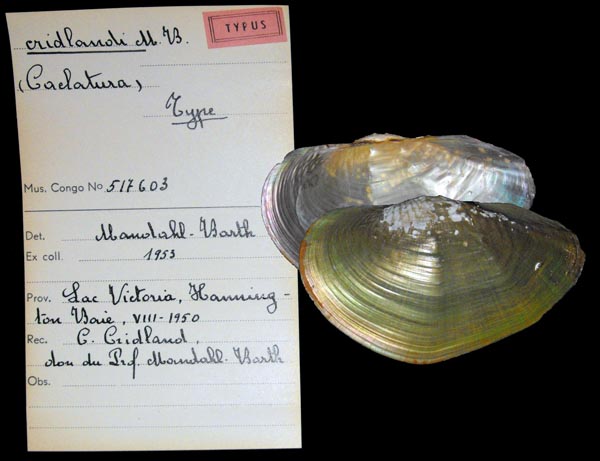 TYPUS
cridlandi M.B.
(Caelatura)
Type
Mus. Congo No 517603
Det. Mandahl-Barth
Ex coll. 1953
Prov. Lac Victoria, Hanning-
ton Baie, VIII-1950
Rec. C. Cridland,
don du Prof. Mandahl-Barth
Obs.